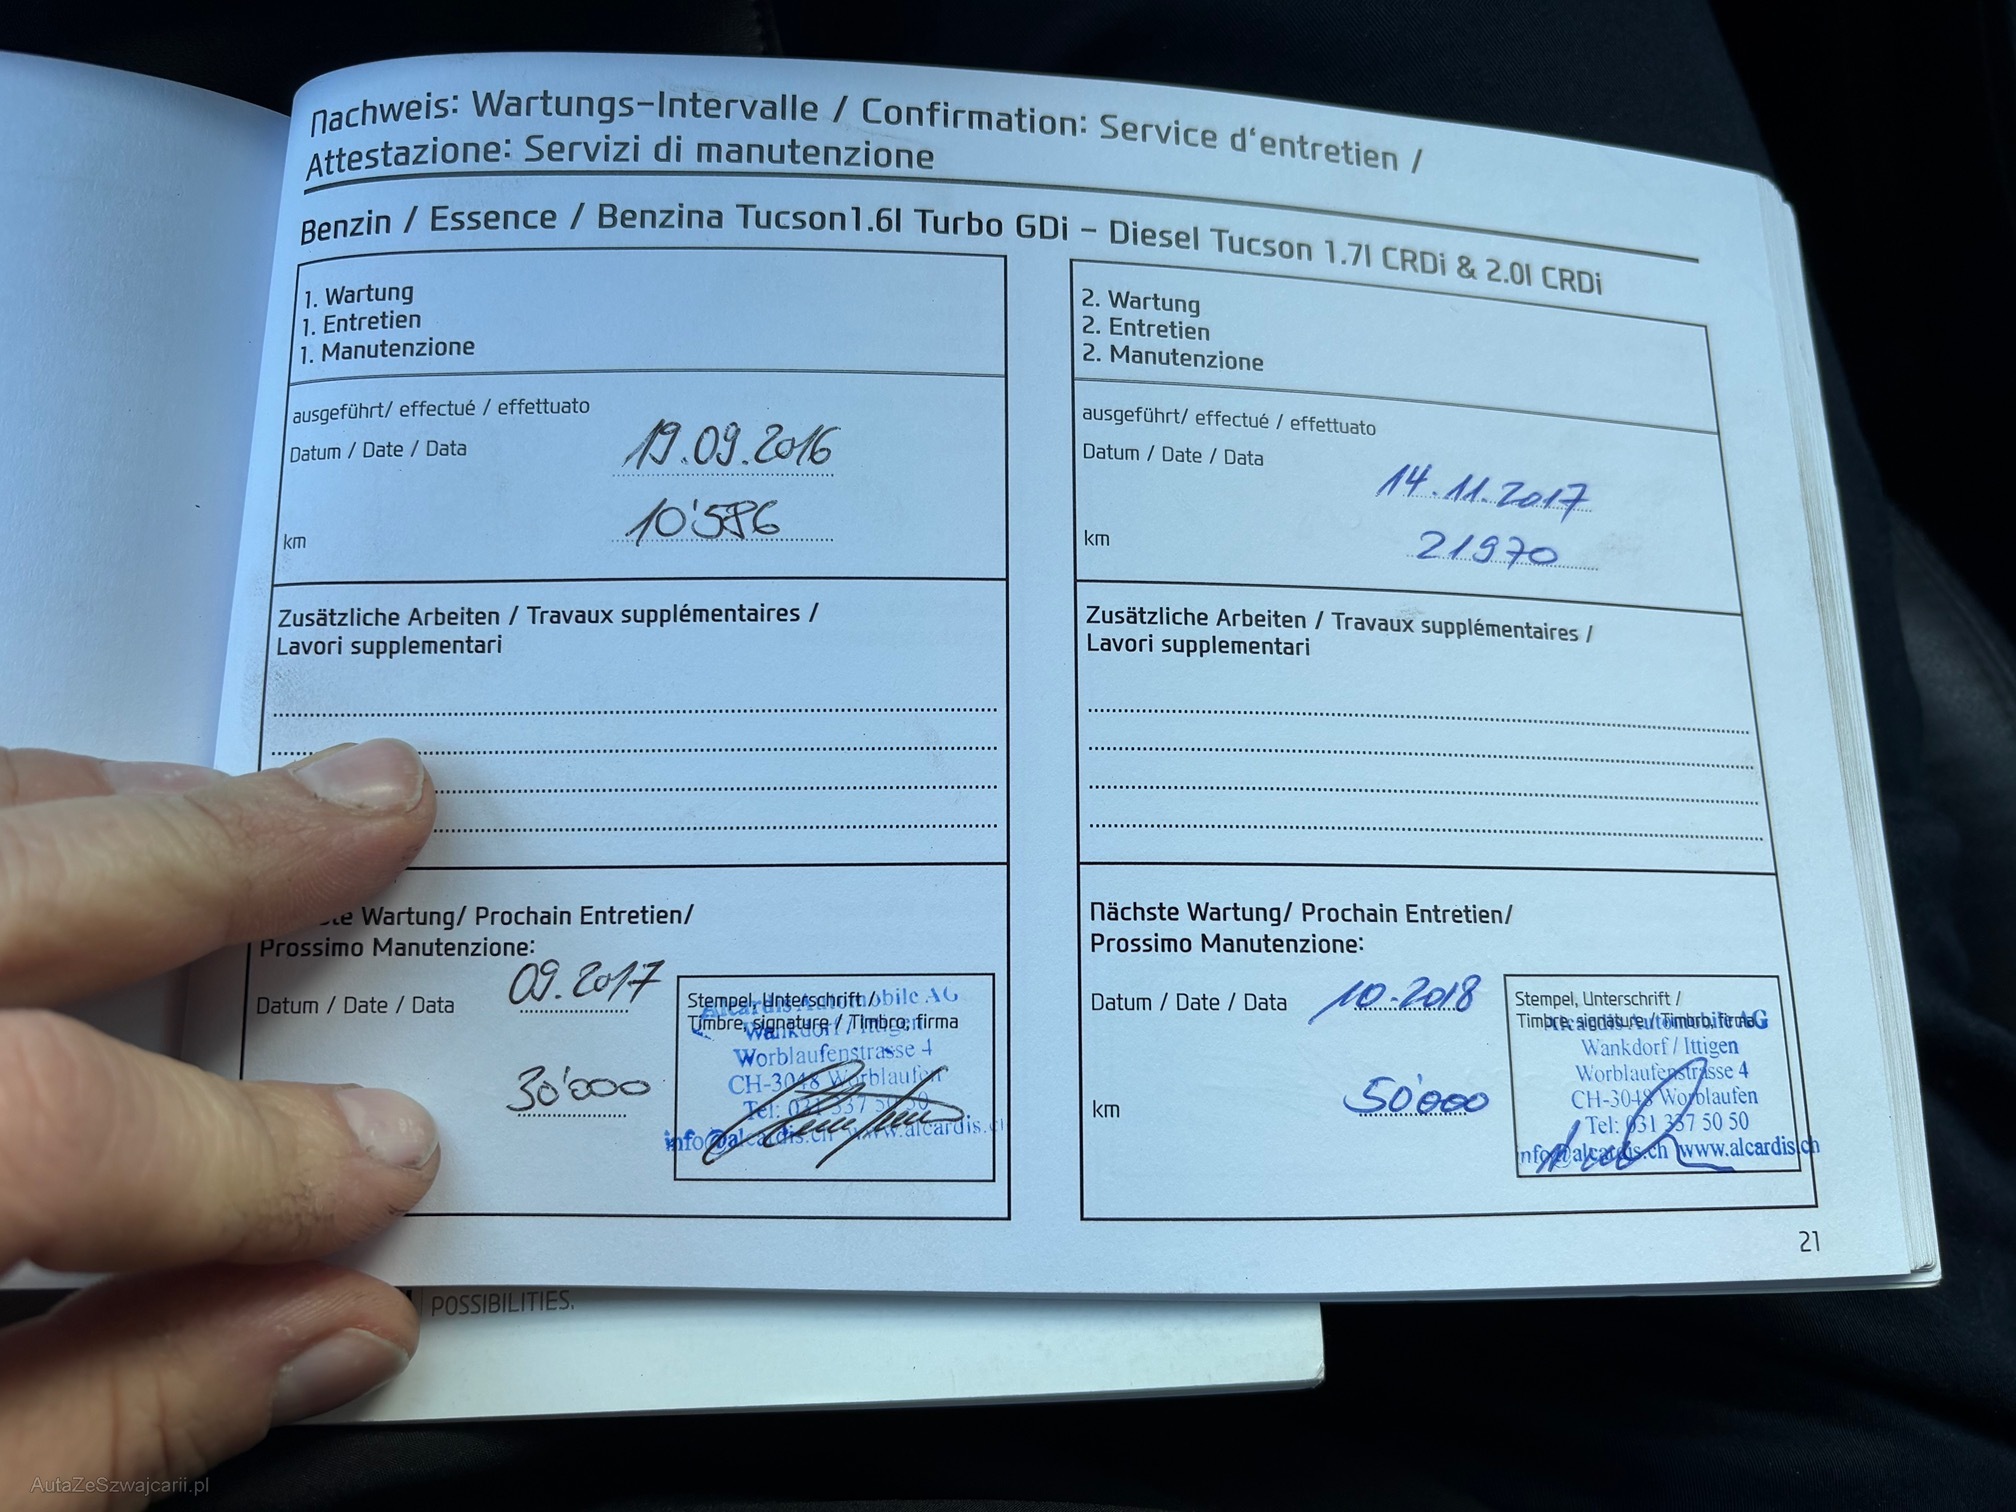 Nachweis: Wartungs-Intervalle / Confirmation: Service d'entretien /
Attestazione: Servizi di manutenzione
Benzin / Essence / Benzina Tucson1.6l Turbo GDi – Diesel Tucson 1.7l CRDi & 2.0l CRDi
1. Wartung
1. Entretien
1. Manutenzione
ausgeführt/ effectué / effettuato
Datum / Date / Data 19.09.2016
km 10'586
Zusätzliche Arbeiten / Travaux supplémentaires /
Lavori supplementari
Wartung/ Prochain Entretien/
Prossimo Manutenzione:
Datum / Date / Data 09.2017
30'000
Stempel, Unterschrift /
Timbre, signature / Timbro, firma
Alcardis Automobile AG
Wankdorf / Ittigen
Worblaufenstrasse 4
CH-3048 Worblaufen
Tel: 031 337 50 50
info@alcardis.ch www.alcardis.ch
2. Wartung
2. Entretien
2. Manutenzione
ausgeführt/ effectué / effettuato
Datum / Date / Data 14.11.2017
km 21970
Zusätzliche Arbeiten / Travaux supplémentaires /
Lavori supplementari
Nächste Wartung/ Prochain Entretien/
Prossimo Manutenzione:
Datum / Date / Data 10.2018
km 50'000
Stempel, Unterschrift /
Timbre, signature / Timbro, firma
Alcardis Automobile AG
Wankdorf / Ittigen
Worblaufenstrasse 4
CH-3048 Worblaufen
Tel: 031 337 50 50
info@alcardis.ch www.alcardis.ch
21
POSSIBILITIES.
AutaZeSzwajcarii.pl